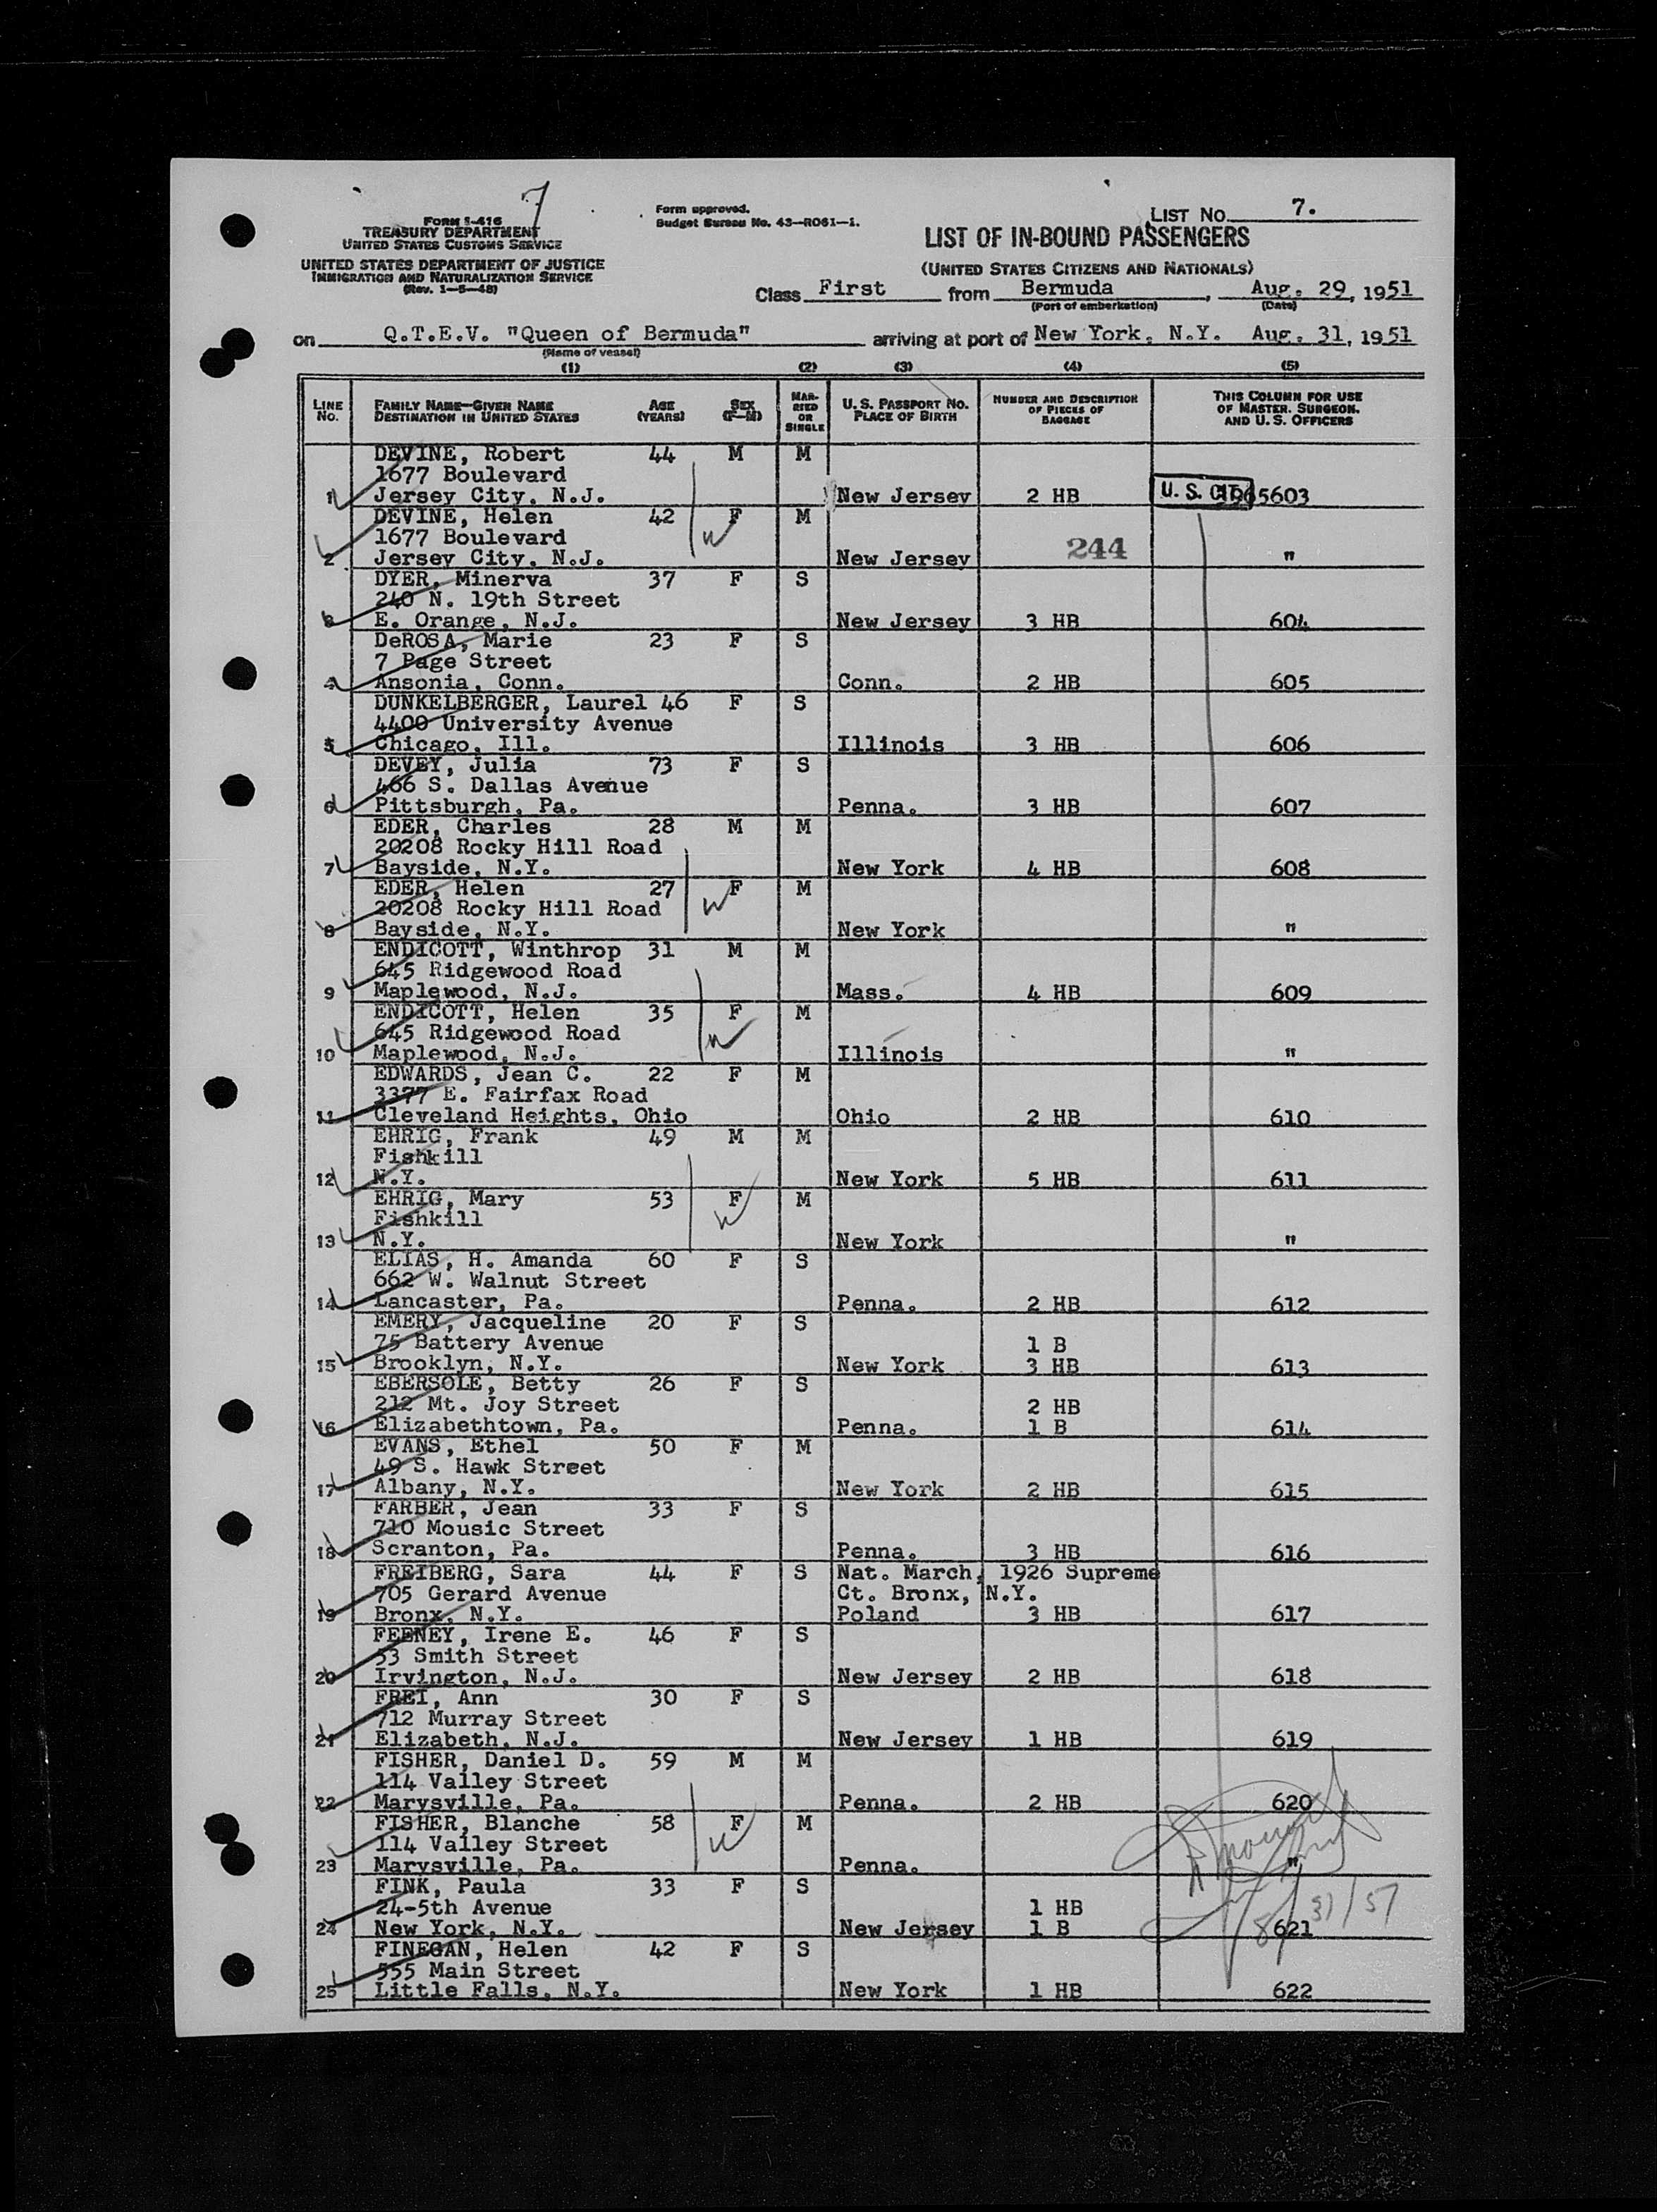 7
FORM I-416
TREASURY DEPARTMENT
UNITED STATES CUSTOMS SERVICE
UNITED STATES DEPARTMENT OF JUSTICE
IMMIGRATION AND NATURALIZATION SERVICE
(Rev. 1-5-48)
Form approved.
Budget Bureau No. 43-R061-1.
LIST NO. 7.
LIST OF IN-BOUND PASSENGERS
(UNITED STATES CITIZENS AND NATIONALS)
Class First from Bermuda, Aug. 29, 1951
(Port of embarkation) (Date)
on Q.T.E.V. "Queen of Bermuda" arriving at port of New York, N.Y. Aug. 31, 1951
(Name of vessel)
(1) (2) (3) (4) (5)
LINE NO. FAMILY NAME-GIVEN NAME DESTINATION IN UNITED STATES AGE (YEARS) SEX (F-M) MARRIED OR SINGLE U. S. PASSPORT NO. PLACE OF BIRTH NUMBER AND DESCRIPTION OF PIECES OF BAGGAGE THIS COLUMN FOR USE OF MASTER, SURGEON, AND U. S. OFFICERS
DEVINE, Robert 44 M M
1677 Boulevard
1 Jersey City, N.J. New Jersey 2 HB U. S. CIT. 5603
DEVINE, Helen 42 F M
1677 Boulevard
2 Jersey City, N.J. New Jersey 244 "
DYER, Minerva 37 F S
240 N. 19th Street
3 E. Orange, N.J. New Jersey 3 HB 604
DeROSA, Marie 23 F S
7 Page Street
4 Ansonia, Conn. Conn. 2 HB 605
DUNKELBERGER, Laurel 46 F S
4400 University Avenue
5 Chicago, Ill. Illinois 3 HB 606
DEVEY, Julia 73 F S
466 S. Dallas Avenue
6 Pittsburgh, Pa. Penna. 3 HB 607
EDER, Charles 28 M M
20208 Rocky Hill Road
7 Bayside, N.Y. New York 4 HB 608
EDER, Helen 27 F M
20208 Rocky Hill Road
8 Bayside, N.Y. New York "
ENDICOTT, Winthrop 31 M M
645 Ridgewood Road
9 Maplewood, N.J. Mass. 4 HB 609
ENDICOTT, Helen 35 F M
645 Ridgewood Road
10 Maplewood, N.J. Illinois "
EDWARDS, Jean C. 22 F M
3377 E. Fairfax Road
11 Cleveland Heights, Ohio Ohio 2 HB 610
EHRIG, Frank 49 M M
Fishkill
12 N.Y. New York 5 HB 611
EHRIG, Mary 53 F M
Fishkill
13 N.Y. New York "
ELIAS, H. Amanda 60 F S
662 W. Walnut Street
14 Lancaster, Pa. Penna. 2 HB 612
EMERY, Jacqueline 20 F S
75 Battery Avenue 1 B
15 Brooklyn, N.Y. New York 3 HB 613
EBERSOLE, Betty 26 F S
212 Mt. Joy Street 2 HB
16 Elizabethtown, Pa. Penna. 1 B 614
EVANS, Ethel 50 F M
49 S. Hawk Street
17 Albany, N.Y. New York 2 HB 615
FARBER, Jean 33 F S
710 Mousic Street
18 Scranton, Pa. Penna. 3 HB 616
FREIBERG, Sara 44 F S Nat. March, 1926 Supreme
705 Gerard Avenue Ct. Bronx, N.Y.
19 Bronx, N.Y. Poland 3 HB 617
FEENEY, Irene E. 46 F S
53 Smith Street
20 Irvington, N.J. New Jersey 2 HB 618
FREI, Ann 30 F S
712 Murray Street
21 Elizabeth, N.J. New Jersey 1 HB 619
FISHER, Daniel D. 59 M M
114 Valley Street
22 Marysville, Pa. Penna. 2 HB 620
FISHER, Blanche 58 F M
114 Valley Street
23 Marysville, Pa. Penna. "
FINK, Paula 33 F S
24-5th Avenue 1 HB
24 New York, N.Y. New Jersey 1 B 621
8/31/51
FINEGAN, Helen 42 F S
555 Main Street
25 Little Falls, N.Y. New York 1 HB 622